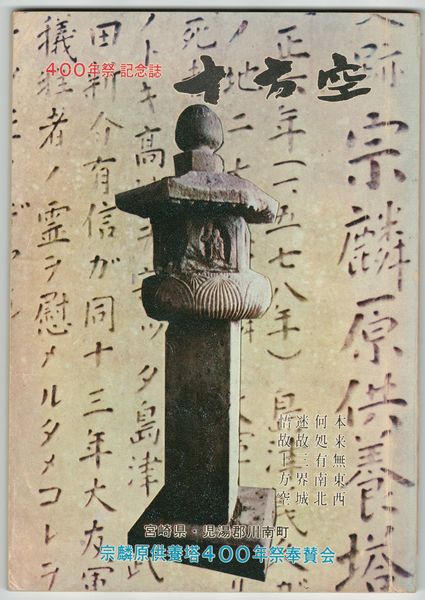 400年祭 記念誌
十方空
跡 宗麟原供養塔
正六年(一五七八年)
ノ地ニ
死
ノトキ高城
ッタ島津
田新介有信が同十三年大友軍
犠牲者ノ霊ヲ慰メルタメコレヲ
本来無東西
何処有南北
迷故三界城
悟故十方空
宮崎県・児湯郡川南町
宗麟原供養塔400年祭奉賛会